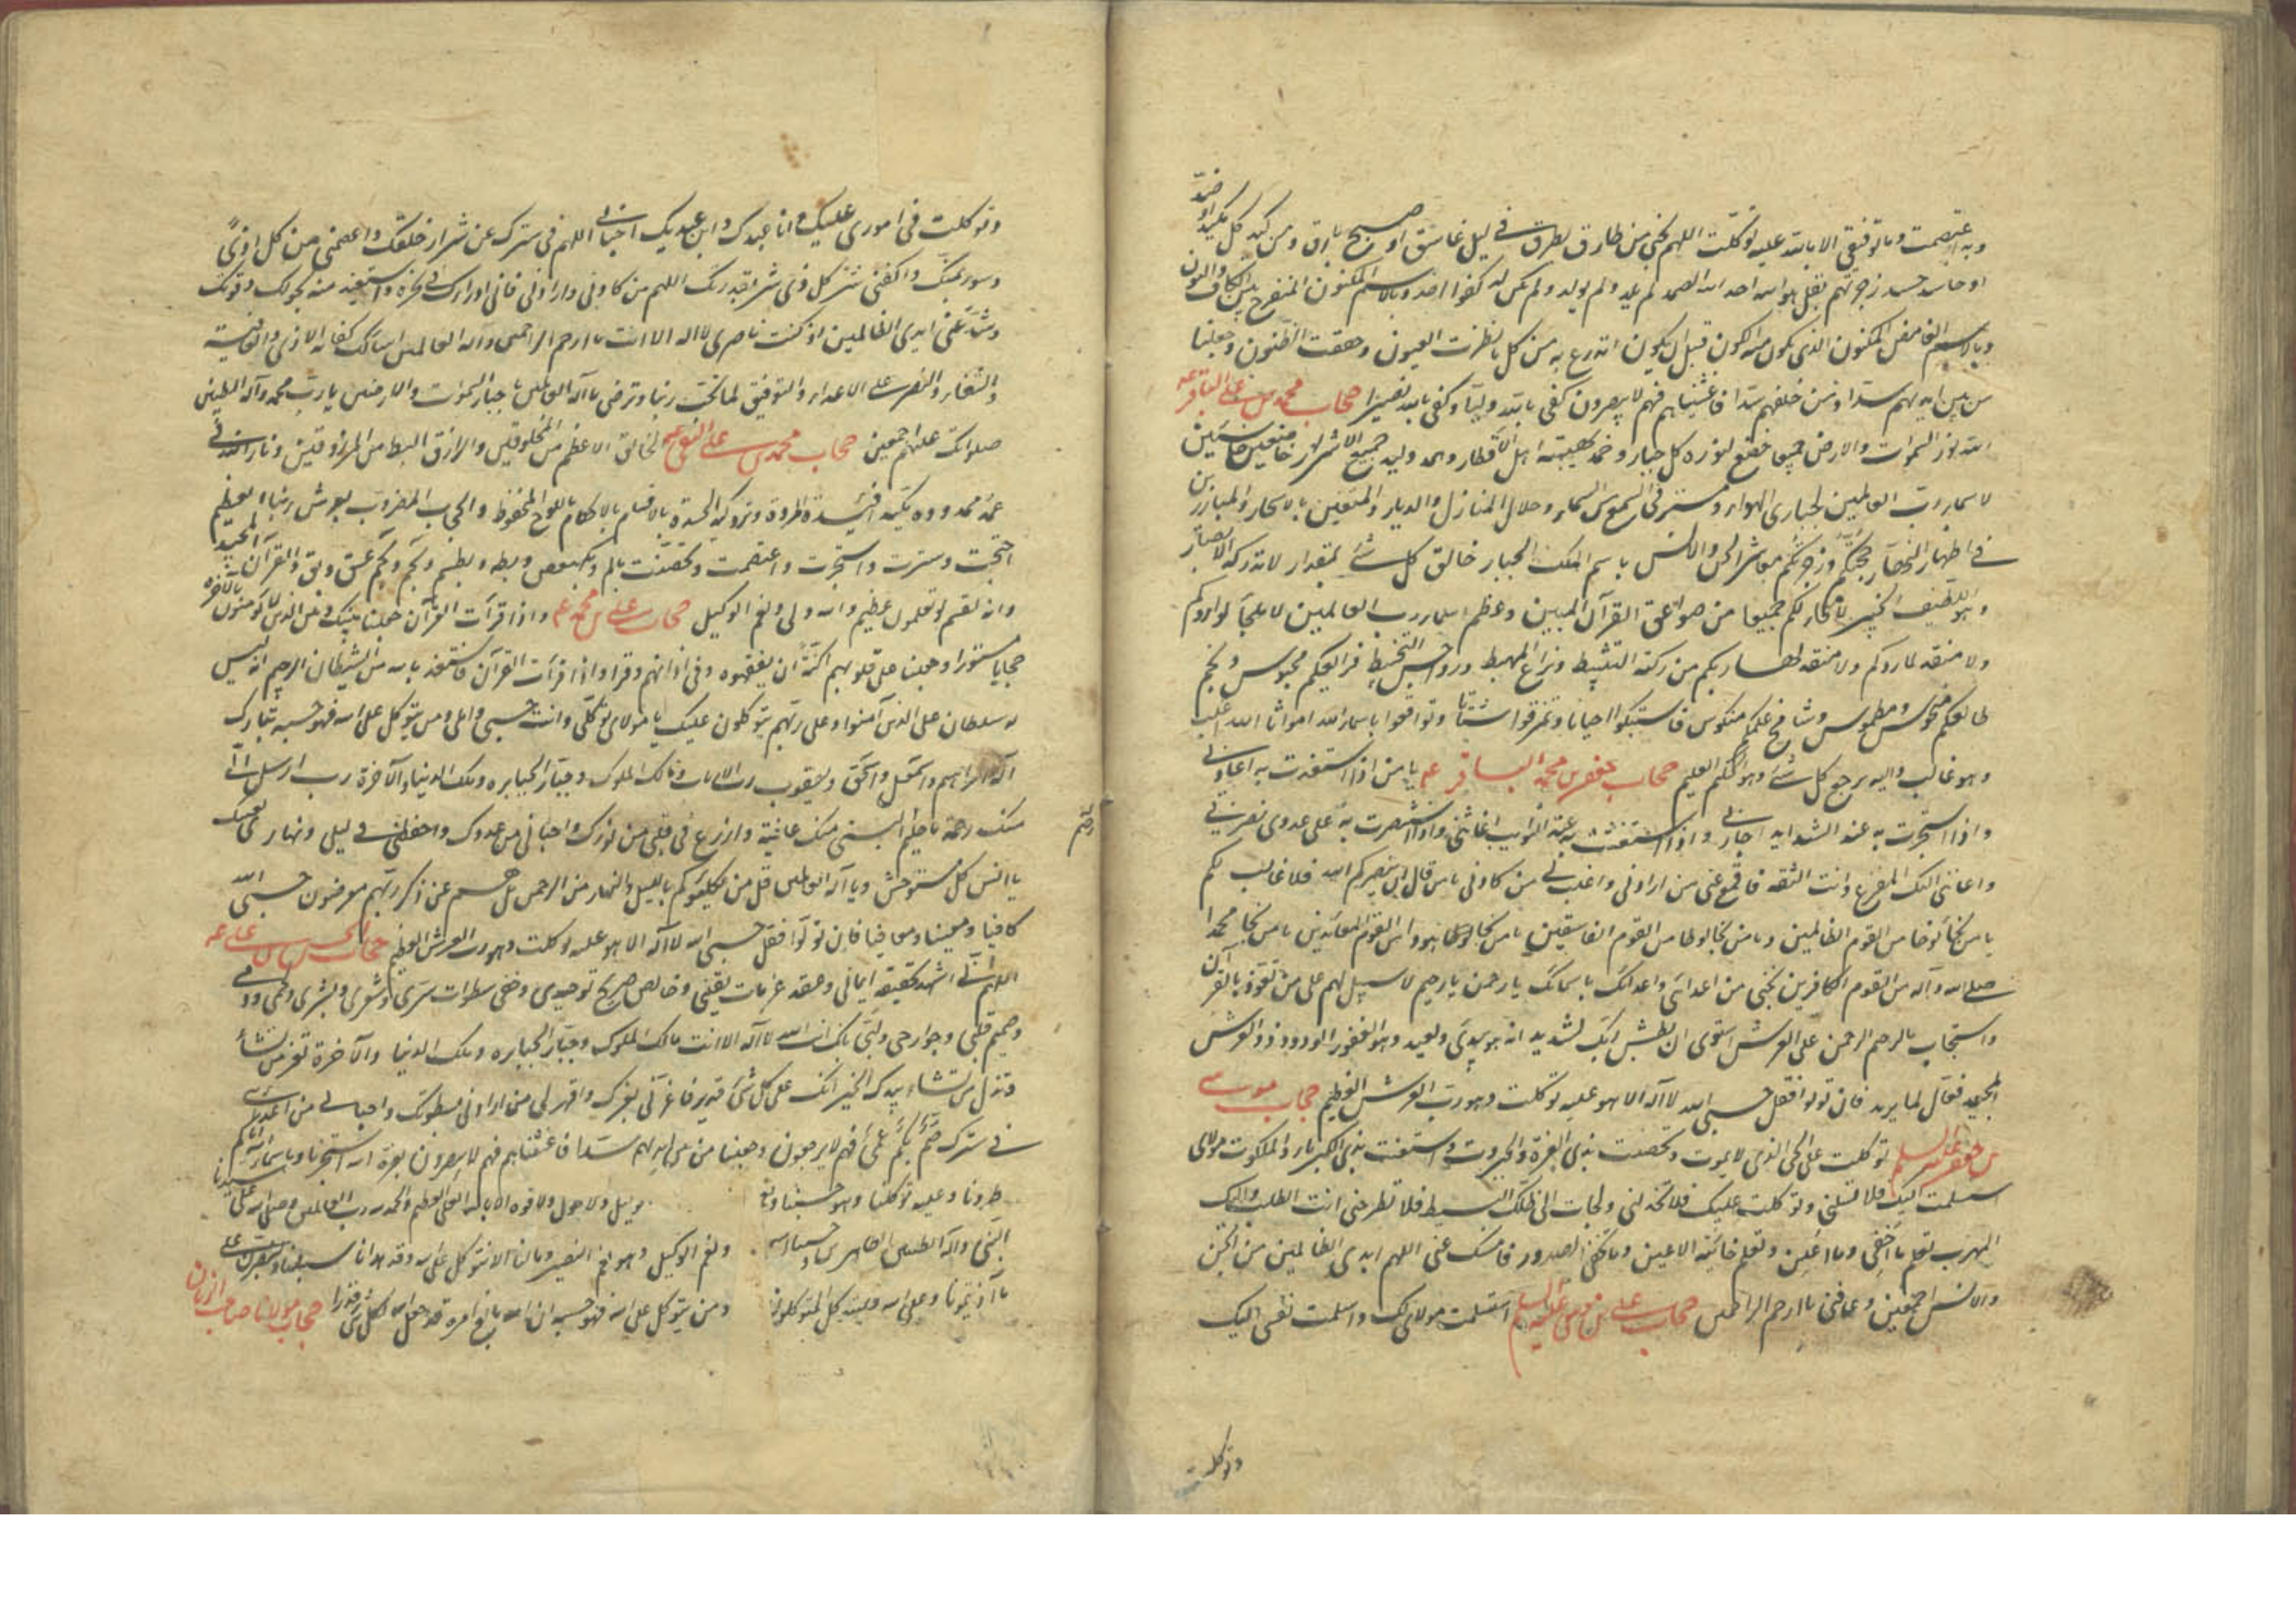 وبه اعتصمت وما توفيقى الا بالله عليه توكلت اللهم نجنى من طارق يطرق فى ليل غاسق او صبح بارق ومن كيد كل مكيد او ضد
او حاسد حسد زجرتهم بقل هو الله احد الله الصمد لم يلد ولم يولد ولم يكن له كفوا احد وبالاسم المكنون المنفرج بين الكاف والنون
وبالاسم الغامض المكنون الذى يكون منه الكون قبل ان يكون اتدرع به من كل ما نظرت العيون وحققت الظنون وجعلنا
من بين ايديهم سدا ومن خلفهم سدا فاغشيناهم فهم لا يبصرون كفى بالله وليا وكفى بالله نصيرا حجاب محمد بن على الباقر ع
الله نور السموات والارض جميعا خضع لنوره كل جبار وخمد لهيبته اهل الاقطار وهمد وليد جميع الاشرار خاضعين خاسئين
لاسماء رب العالمين لجبارى الهواء ومسترقى السمع من السماء وحلال المنازل والديار والمتعنين بالاسحار والمبارزين
فى اظهار النهار حجبتكم وزجرتكم معاشر الجن والانس باسم الملك الجبار خالق كل شئ بمقدار لا تدركه الابصار
وهو اللطيف الخبير لا نجاء لكم جميعا من صواعق القرآن المبين وعظم اسماء رب العالمين لا ملجا لواردكم
ولا منقذ لماردكم ولا منقذ لهاربكم من ركة التثبيط ونزاع المهبط ورواجس التخبيط فرايعكم محبوس ونجم
طالعكم منحوس ومطموس وشامخ علمكم منكوس فاستبكوا احيانا وتمزقوا اشتاتا وتواقعوا باسماء الله امواتا الله اغلب
وهو غالب واليه يرجع كل شئ وهو الحكيم العليم حجاب جعفر بن محمد الباقر ع يا من اذا استعذت به اعاذنى
واذا استجرت به عند الشدايد اجارنى واذا استغثت به عند النوايب اغاثنى واذا استنصرت به على عدوى نصرنى
واعاننى اليك المفزع وانت الثقه فاقمع عنى من ارادنى واغلب لى من كادنى يا من قال ان ينصركم الله فلا غالب لكم
يا من نجا نوحا من القوم الظالمين ويا من نجا لوطا من القوم الفاسقين يا من نجا هودا من القوم المعاندين يا من نجا محمدا
صلى الله عليه وآله من القوم الكافرين نجنى من اعدائى واعدائك باسمائك يا رحمن يا رحيم لا سبيل لهم على من تعوذ بالقرآن
واستجاب بالرحيم الرحمن على العرش استوى ان بطش ربك لشديد انه هو يبدئ ويعيد وهو الغفور الودود ذو العرش
المجيد فعال لما يريد فان تولوا فقل حسبى الله لا اله الا هو عليه توكلت وهو رب العرش العظيم حجاب موسى
بن جعفر عليه السلم توكلت على الحى الذى لا يموت وتحصنت بذى العزة والجبروت واستعنت بذى الكبرياء والملكوت مولاى
استسلمت اليك فلا تسلمنى وتوكلت عليك فلا تخذلنى ولجات الى ظلك البسيط فلا تطرحنى انت الطلب واليك
المهرب تعلم ما اخفى وما اعلن وتعلم خائنة الاعين وما تخفى الصدور فامسك عنى اللهم ايدى الظالمين من الجن
والانس اجمعين وعافنى يا ارحم الراحمين حجاب على بن موسى عليه السلام استسلمت مولاى لك واسلمت نفسى اليك
وتوكلت
وتوكلت فى امورى عليك انا عبدك وابن عبديك اخبانى اللهم فى سترك عن شرار خلقك واعصمنى من كل اذى
وسوء بمنك واكفنى شر كل ذى شر بقدرتك اللهم من كادنى وارادنى فانى ادراك فى نحره واستعيذ منه بحولك وقوتك
وشد عنى ايدى الظالمين اذ كنت ناصرى لا اله الا انت يا ارحم الراحمين واله العالمين اسالك كفاية الاذى والعافية
والشفاء والنصر على الاعداء والتوفيق لما تحب ربنا وترضى يا اله العالمين يا جبار السموات والارضين يا رب محمد وآله الطيبين
صلواتك عليهم اجمعين حجاب محمد بن على التقى ع الخالق الاعظم من المخلوقين والرازق ابسط من المرزوقين ونار الله
فى عمد ممددة افئدة المردة وترد كيد الحسدة بالاقسام بالاحكام باللوح المحفوظ والحجاب المضروب بعرش ربنا العظيم
احتجبت وسترت واستجرت واعتصمت وتحصنت بالم وبكهيعص وبطه وبطسم وبحم وبحمعسق وبق والقرآن المجيد
وانه لقسم لو تعلمون عظيم والله ولى ونعم الوكيل حجاب على بن محمد ع واذا قرأت القرآن جعلنا بينك وبين الذين لا يؤمنون بالاخرة
حجابا مستورا وجعلنا على قلوبهم اكنة ان يفقهوه وفى اذانهم وقرا واذا قرأت القرآن فاستعذ بالله من الشيطان الرجيم انه ليس
له سلطان على الذين آمنوا وعلى ربهم يتوكلون عليك يا مولاى توكلى وانت حسبى واملى ومن يتوكل على الله فهو حسبه تبارك
اله ابراهيم واسمعيل واسحق ويعقوب رب الارباب ومالك الملوك وجبار الجبابره وملك الدنيا والآخرة رب ارسل الى
منك رحمة يا حليم البسنى منك عافية وازرع فى قلبى من نورك واخبانى من عدوك واحفظنى فى ليلى ونهارى بعينك
يا انس كل مستوحش ويا اله العالمين قل من يكلؤكم بالليل والنهار من الرحمن بل هم عن ذكر ربهم معرضون حسبى الله
كافيا ومعينا ومعافيا فان تولوا فقل حسبى الله لا اله الا هو عليه توكلت وهو رب العرش العظيم حجاب الحسن بن على ع
اللهم انى اشهد بحقيقة ايمانى وعقد عزمات يقينى وخالص صريح توحيدى وخفى سطوات سرى وشعرى وبشرى ولحمى ودمى
وصميم قلبى وجوارحى ولبى بانك انت الله لا اله الا انت مالك الملوك وجبار الجبابره وملك الدنيا والآخرة تعز من تشاء
وتذل من تشاء بيدك الخير انك على كل شئ قدير فاعزنى بعزك واقهر لى من ارادنى بسطوتك واخبانى من اعدائى
فى سترك صم بكم عمى فهم لا يرجعون وجعلنا من بين ايديهم سدا فاغشيناهم فهم لا يبصرون بعزة الله استجرنا وباسماء الله اياكم
طردنا وعليه توكلنا وهو حسبنا ونعم الوكيل ولا حول ولا قوه الا بالله العلى العظيم والحمد لله رب العالمين وصلى الله على سيدنا
النبى وآله الطيبين الطاهرين وحسبنا الله ونعم الوكيل وهو نعم النصير وما لنا الا نتوكل على الله وقد هدانا سبلنا ولنصبرن على
ما آذيتمونا وعلى الله فليتوكل المتوكلون ومن يتوكل على الله فهو حسبه ان الله بالغ امره قد جعل الله لكل شئ قدرا حجاب مولانا صاحب الزمان